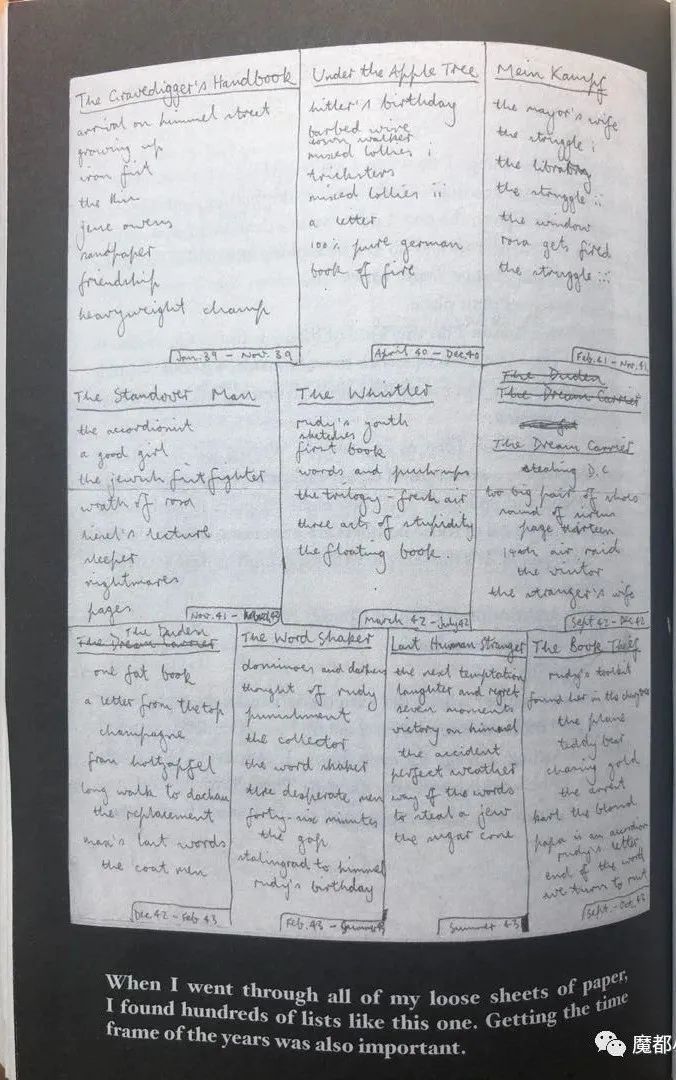 The Gravedigger's Handbook
arrival on himmel street
growing up
iron fist
the kiss
jesse owens
sandpaper
friendship
heavyweight champ
Jan. 39 - Nov. 39
Under the Apple Tree
hitler's birthday
barbed wire
walker
mixed lollies i
tricksters
mixed lollies ii
a letter
100% pure german
book of fire
April 40 - Dec. 40
Mein Kampf
the mayor's wife
the struggle i
the library
the struggle ii
the window
rosa gets fired
the struggle iii
Feb. 41 - Nov. 41
The Standover Man
the accordionist
a good girl
the jewish fistfighter
wrath of rosa
liesel's lecture
sleeper
nightmares
pages
Nov. 41 -
The Whistler
rudy's youth
sketches
first book
words and push-ups
the trilogy - fresh air
three acts of stupidity
the floating book
March 42 - July 42
The Duden
The Dream Carrier
The Dream Carrier
stealing D.C
too big pair of shoes
sound of sirens
page thirteen
air raid
the visitor
the stranger's wife
Sept 42 - Dec. 42
The Duden
The Dream Carrier
one fat book
a letter from the top
champagne
frau holtzapfel
long walk to dachau
the replacement
max's last words
the coat men
Dec. 42 - Feb. 43
The Word Shaker
dominoes and darkness
thought of rudy
punishment
the collector
the word shaker
three desperate men
forty-six minutes
the gap
stalingrad to himmel
rudy's birthday
Feb. 43 -
Last Human Stranger
the next temptation
laughter and regret
seven moments
victory on himmel
the accident
perfect weather
way of the words
to steal a jew
the sugar cone
Summer 43
The Book Thief
rudy's toolkit
found her in the
the plane
teddy bear
chasing gold
the arrest
karl the blond
papa is an accordion
rudy's letter
end of the world
Sept. - Oct. 43
When I went through all of my loose sheets of paper,
I found hundreds of lists like this one. Getting the time
frame of the years was also important.
魔都